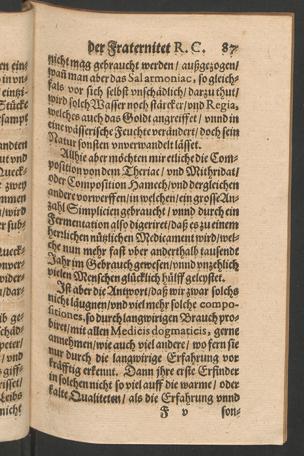 der Fraternitet R. C. 87
nicht mag gebraucht werden / außgezogen/
wañ man aber das Sal armoniac, so gleich-
fals vor sich selbst vnschädlich/ darzu thut/
wird solch Wasser noch stärcker/vnd Regia,
welches auch das Goldt angreiffet / vnnd in
eine wässerische Feuchte verändert/ doch sein
Natur sonsten vnverwandelt lässet.
Allhie aber möchten mir etliche die Com-
position von dem Theriac / vnd Mithridat/
oder Composition Hamech/ vnd dergleichen
andere vorwerffen/in welchen/ein grosse An-
zahl Simplicien gebraucht / vnnd durch ein
Fermentation also digeriret/ daß es zu einem
herrlichen nützlichen Medicament wird/wel-
che nun mehr fast vber anderthalb tausendt
Jahr im Gebrauch gewesen/vnnd vnzehlich
vielen Menschen glücklich hülff geleystet.
Ist aber die Antwort/ daß wir zwar solchs
nicht läugnen/vnd viel mehr solche compo-
sitiones, so durch langwirigen Brauch pro-
biret/ mit allen Medicis dogmaticis, gerne
annehmen/wie auch viel andere/ wo fern sie
nur durch die langwirige Erfahrung vor
kräfftig erkennt. Dann jhre erste Erfinder
in solchen nicht so viel auff die warme / oder
kalte Qualiteten/ als die Erfahrung vnnd
F v son-